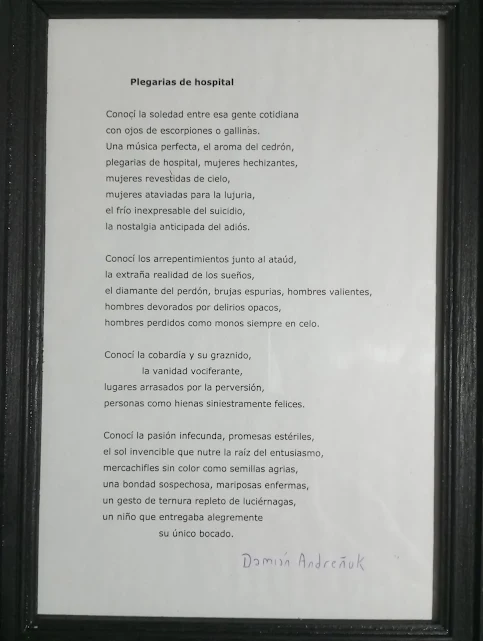 Plegarias de hospital
Conocí la soledad entre esa gente cotidiana
con ojos de escorpiones o gallinas.
Una música perfecta, el aroma del cedrón,
plegarias de hospital, mujeres hechizantes,
mujeres revestidas de cielo,
mujeres ataviadas para la lujuria,
el frío inexpresable del suicidio,
la nostalgia anticipada del adiós.
Conocí los arrepentimientos junto al ataúd,
la extraña realidad de los sueños,
el diamante del perdón, brujas espurias, hombres valientes,
hombres devorados por delirios opacos,
hombres perdidos como monos siempre en celo.
Conocí la cobardía y su graznido,
la vanidad vociferante,
lugares arrasados por la perversión,
personas como hienas siniestramente felices.
Conocí la pasión infecunda, promesas estériles,
el sol invencible que nutre la raíz del entusiasmo,
mercachifles sin color como semillas agrias,
una bondad sospechosa, mariposas enfermas,
un gesto de ternura repleto de luciérnagas,
un niño que entregaba alegremente
su único bocado.
Damián Andreñuk